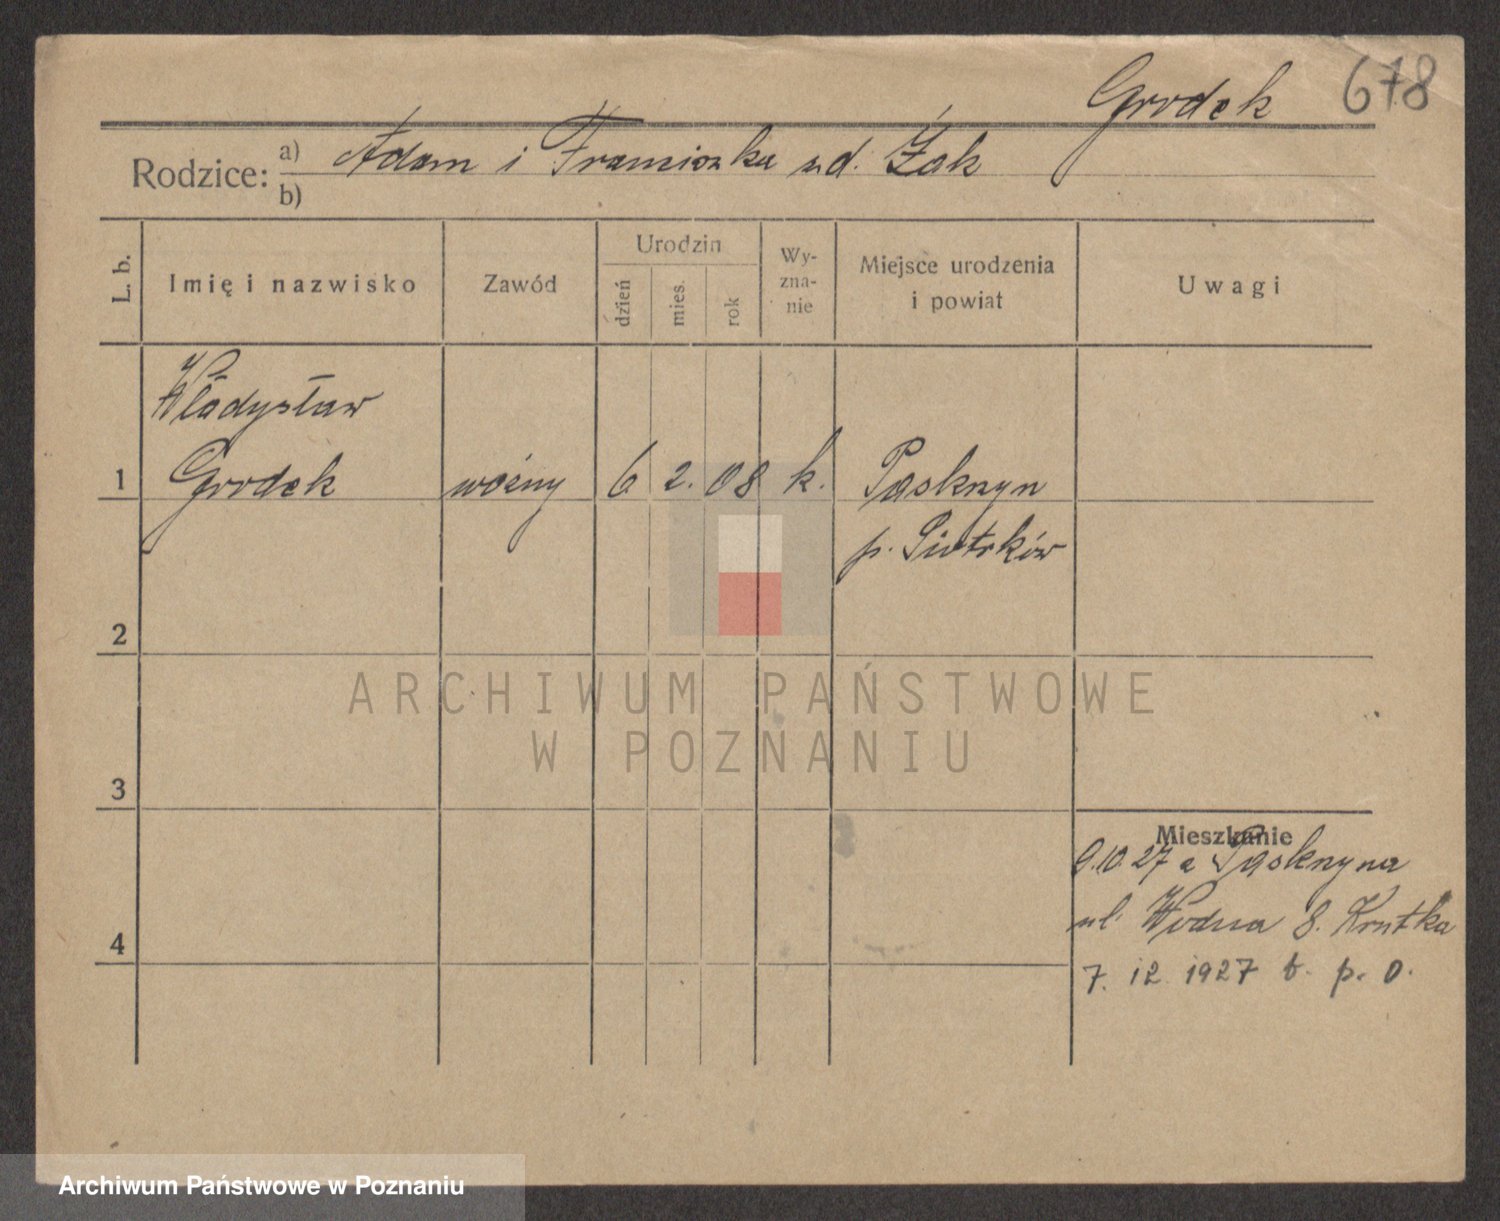 Grodek 678
Rodzice: a) Adam i Franciszka u.d. Żak
b)
L. b. Imię i nazwisko Zawód Urodzin dzień mies. rok Wy-zna-nie Miejsce urodzenia i powiat Uwagi
Władysław
1 Grodek woźny 6 2. 08 k. Paskrzyn
p. Piotrków
2
ARCHIWUM PAŃSTWOWE
W POZNANIU
3
Mieszkanie
9.10 27 z Paskrzyna
ul. Wodna 8. Krutka
7. 12. 1927 p. o.
4
Archiwum Państwowe w Poznaniu